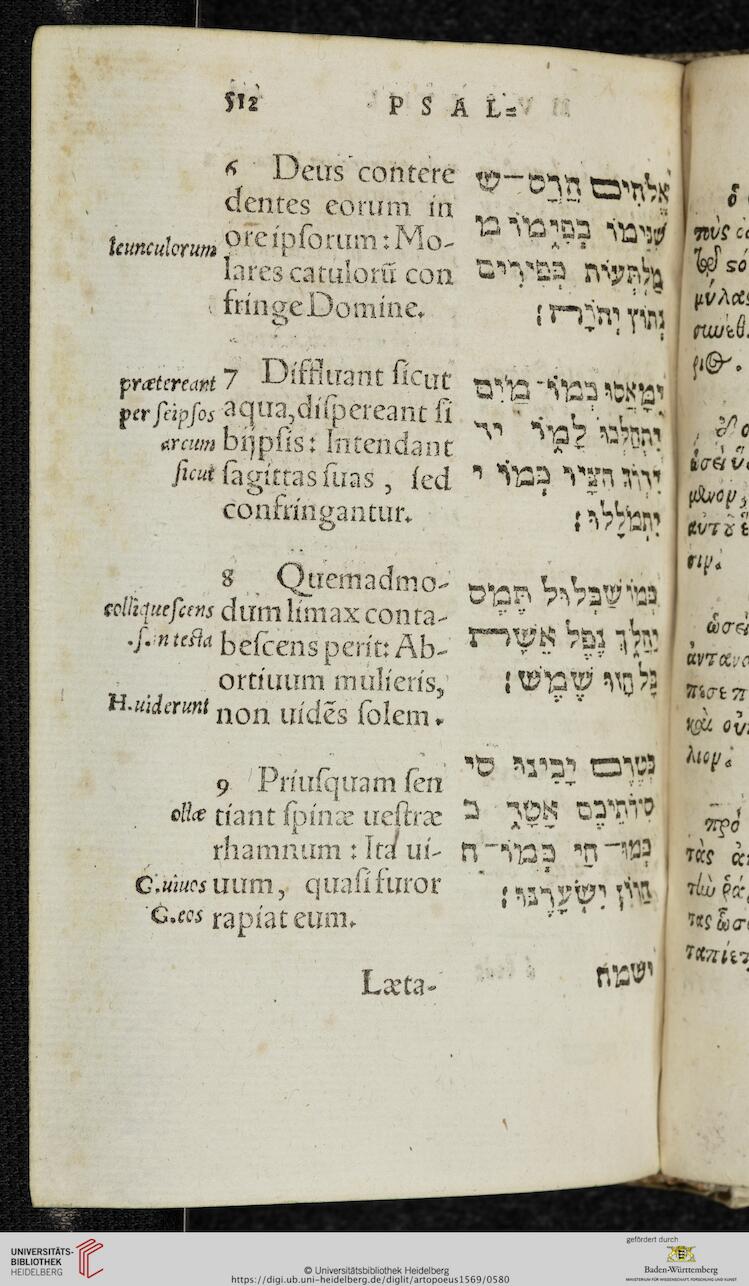 512
PSAL=
6 Deus contere
dentes eorum in
ore ipsorum: Mo-
lares catulorū con
fringe Domine.
leunculorum
7 Diffluant sicut
aqua, dispereant si
bijpsis: Intendant
sagittas suas, sed
confringantur.
prætereant
per seipsos
arcum
sicut
8 Quemadmo-
dum limax conta-
bescens perit: Ab-
ortiuum mulieris,
non uidēs solem.
colliquescens
testa
H.uiderunt
9 Priusquam sen
tiant spinæ uestræ
rhamnum: Ita ui-
uum, quasi furor
rapiat eum.
ollæ
G.uiuos
G.eos
Læta-
אֱלֹהִים הֲרָס־ש
שִׁנֵּימוֹ בְּפִימוֹ מ
מַלְתְּעוֹת כְּפִירִים
נְתוֹץ יְהוָֹה׃
יִמָּאֲסוּ כְמוֹ־מַיִם
יִתְהַלְּכוּ לָמוֹ יד
יִדְרֹךְ חִצָּיו כְּמוֹ י
יִתְמֹלָלוּ׃
כְּמוֹ שַׁבְּלוּל תֶּמֶס
יַהֲלֹךְ נֵפֶל אֵשֶׁת
בַּל חָזוּ שָׁמֶשׁ׃
בְּטֶרֶם יָבִינוּ סי
סִירֹתֵיכֶם אָטָד כ
כְּמוֹ־חַי כְּמוֹ־ח
חָרוֹן יִשְׂעָרֶנּוּ׃
ישמח
πὸς
μύλας
ὡσεὶ
καὶ οὐ
πρὸ
τὰς
UNIVERSITÄTS-
BIBLIOTHEK
HEIDELBERG
© Universitätsbibliothek Heidelberg
https://digi.ub.uni-heidelberg.de/diglit/artopoeus1569/0580
gefördert durch
Baden-Württemberg
MINISTERIUM FÜR WISSENSCHAFT, FORSCHUNG UND KUNST